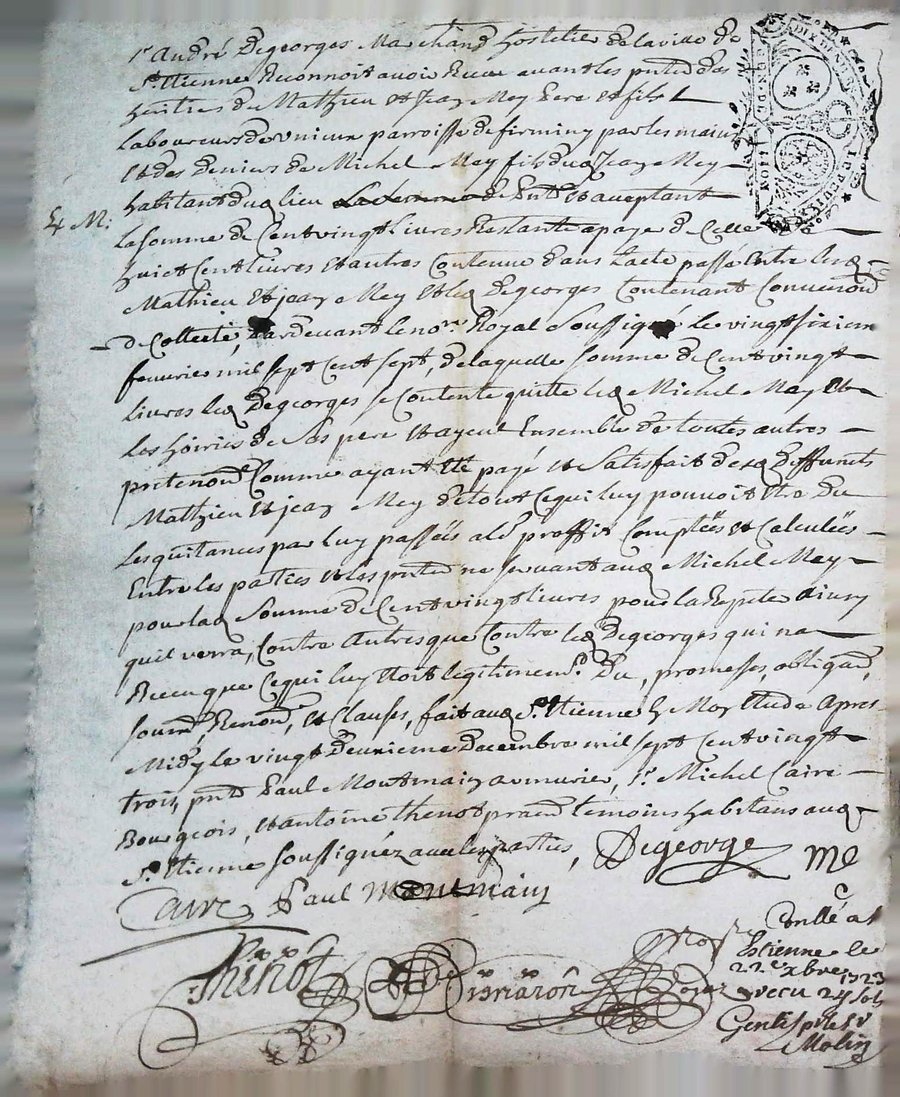 Sr. André Degeorges Marchand hostelier de la ville de
St. Etienne Reconnoit avoir Receu avant les pntes des
heritiers de Mathieu et Jean Mey Pere et fils
Laboureurs d'Unieux parroisse de firminy par les mains
et des deniers de Michel Mey fils dud Jean Mey
habitant dud lieu pnt et acceptant
la somme de Cent vingt livres Restante a payer de Celle
huict Cent livres et autres Contenue dans l'acte passé Entre lesd
Mathieu et jean Mey et led Degeorges Contenant
pardevant le nore. Royal Soussigné le vingt sixieme
fevrier mil sept Cent sept, de laquelle somme de Cent vingt
livres led Degeorges se Contente quitte led Michel Mey et
les hoiries de Ses pere et ayeul Ensemble de toutes autres
Comme ayant Eté payé et Satisfait desd deffunts
Mathieu et jean Mey de tout Ce qui luy pouvoit Etre Du
Les quitances par luy passées a le proffit Comptées et Calculées
Entre les parties et les pntes ne servant aud Michel Mey
pour lad Somme de Cent vingt livres pour la
quil verra, Contre Autres que Contre led Degeorges qui na
Receu que Ce qui luy Etoit legitimemt. Du, promesses, obligaōn,
soumōn, Renonōn, et Clauses, fait aud St. Etienne Etude Apres
Midy le vingt deuxieme Decembre mil sept Cent vingt
trois, pnts Paul Montmain armurier, Sr. Michel Caire
Bourgeois, et antoine thenot temoins habitans aud
St. Etienne Soussignéz avec les parties, Degeorge me
Caire Paul Montmain
Thenot
Conllé a St
Estienne le
22e xbre 1723
recu 24 sols
Molin